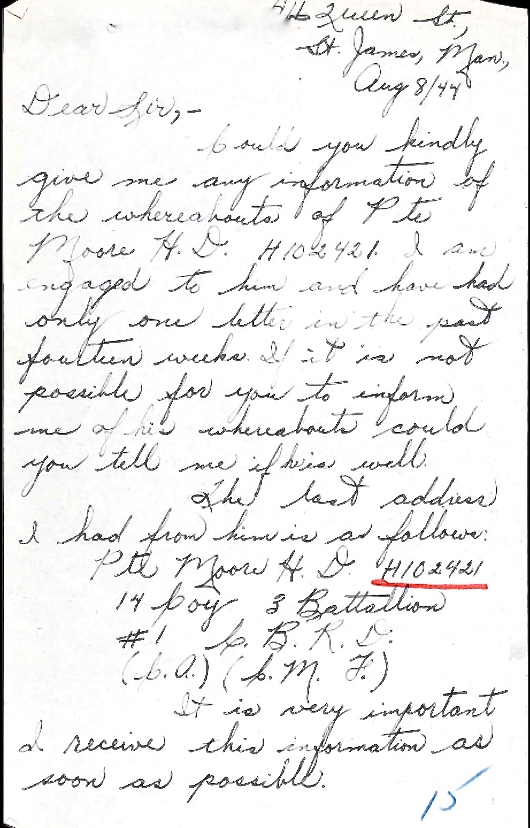 416 Queen St.,
St. James, Man.,
Aug 8/44
Dear Sir,-
Could you kindly
give me any information of
the whereabouts of Pte
Moore H. D. H102421. I am
engaged to him and have had
only one letter in the past
fourteen weeks. If it is not
possible for you to inform
me of his whereabouts could
you tell me if he is well.
The last address
I had from him is as follows:
Pte Moore H. D. H102421
14 Coy 3 Battallion
#1 C. B. R. D.
(C. A.) (C. M. F.)
It is very important
I receive this information as
soon as possible.
15